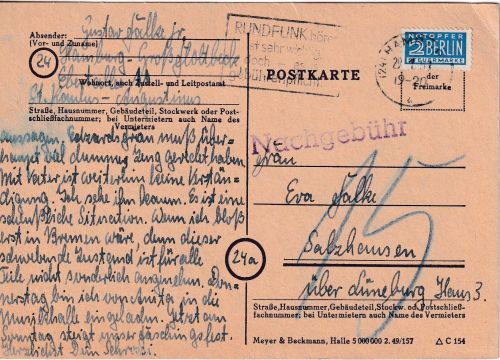 Absender:
(Vor- und Zuname)
Gustav Falke jr.
24
Hamburg-Großflottbek
Wohnort, auch Zustell- und Leitpostamt
Straße, Hausnummer, Gebäudeteil, Stockwerk oder Post-
schließfachnummer; bei Untermietern auch Name des
Vermieters
RUNDFUNK hören
ist sehr wichtig
doch
gebührenpflichtig
NOTOPFER
2 BERLIN
STEUERMARKE
19-20
der
Freimarke
POSTKARTE
Nachgebühr
15
Frau
Eva Falke
Salzhausen
24a
über Lüneburg Haus 3.
Straße, Hausnummer, Gebäudeteil, Stockw. od. Postschließ-
fachnummer; bei Untermietern auch Name des Vermieters
Meyer & Beckmann, Halle 5 000 000 2. 49/157 △ C 154
aussagen. Edzards muß über-
haupt viel dummes Zeug geredet haben.
Mit Vater ist weiterhin keine Verstän-
digung. Ich sehe ihn kaum. Es ist eine
scheußliche Situation. Wenn ich bloß
erst in Bremen wäre, denn dieser
schwebende Zustand ist für alle
Teile nicht sonderlich angenehm. Don-
nerstag bin ich in die
Musikhalle eingeladen. Jetzt am
Sonntag steigt unser Faschingsfest.
Herzlichst Dein